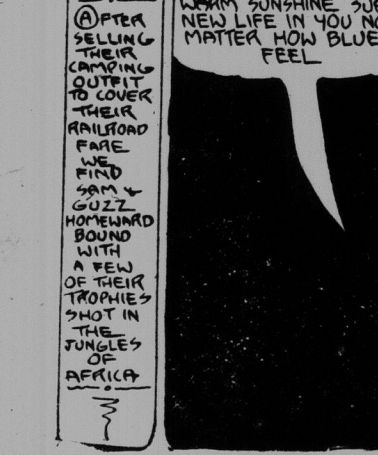 AFTER
SELLING
THEIR
CAMPING
OUTFIT
TO COVER
THEIR
RAILROAD
FARE
WE
FIND
SAM &
GUZZ
HOMEWARD
BOUND
WITH
A FEW
OF THEIR
TROPHIES
SHOT IN
THE
JUNGLES
OF
AFRICA
WARM SUNSHINE
NEW LIFE IN YOU NO
MATTER HOW BLUE
FEEL